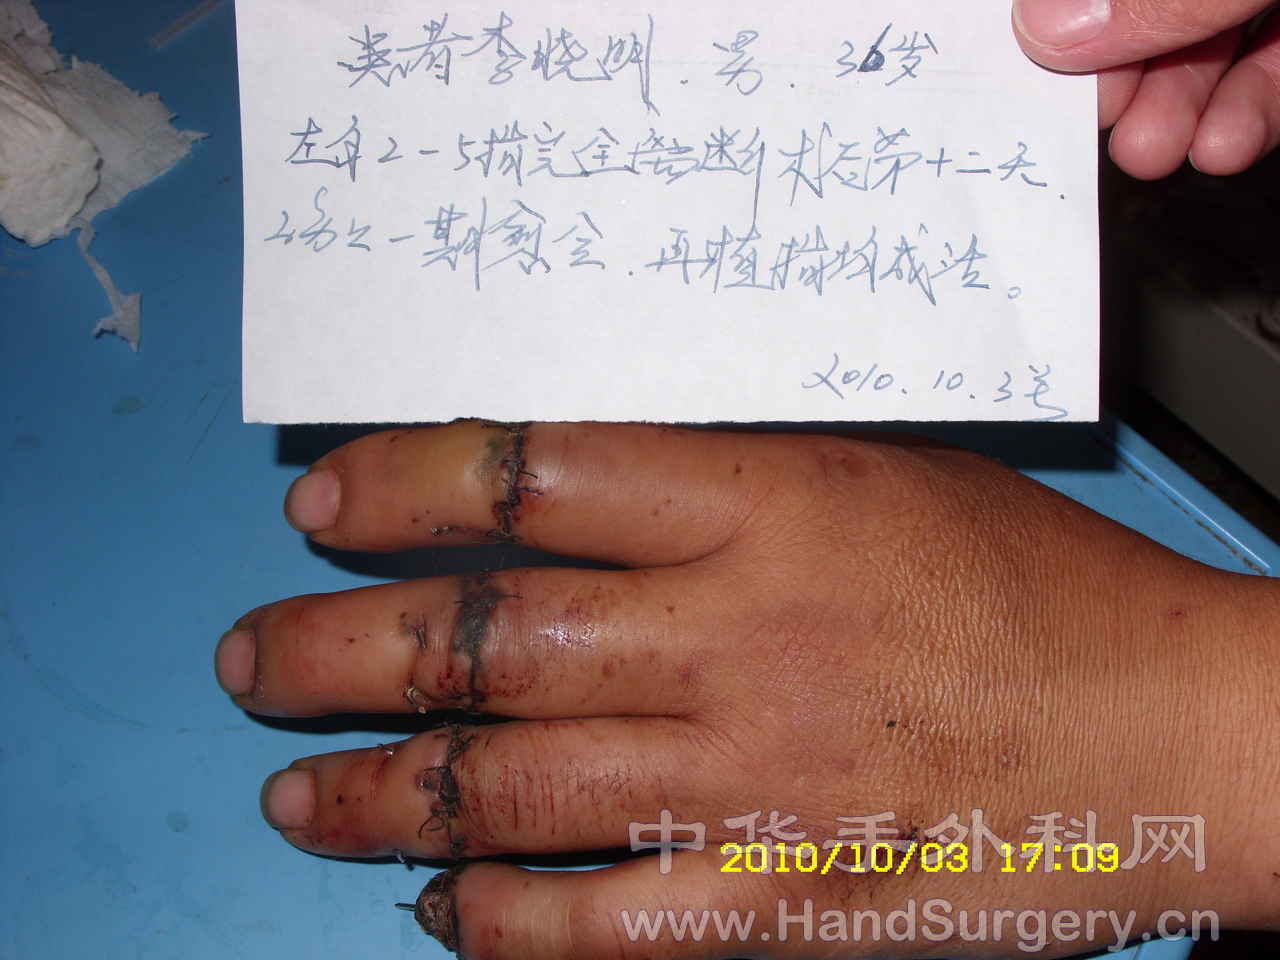 患者李晓明.男.36岁
左手2-5指完全离断术后第十二天.
伤口一期愈合.再植指均成活。
2010.10.3号
中华手外科网
2010/10/03 17:09
www.HandSurgery.cn